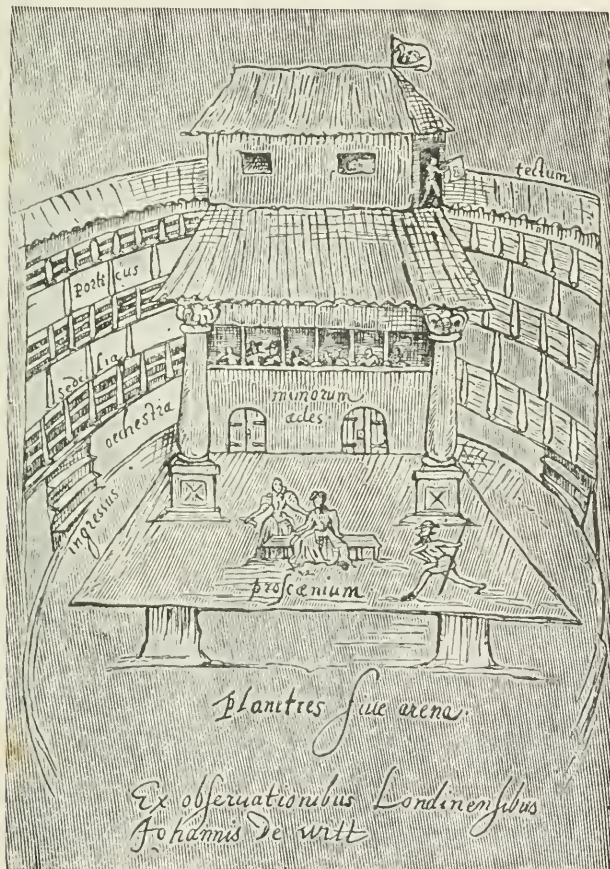 tectum
porticus
sedilia
orchestra
ingressus
mimorum
ædes
proscænium
planities siue arena.
Ex obseruationibus Londinensibus
Johannis De Witt